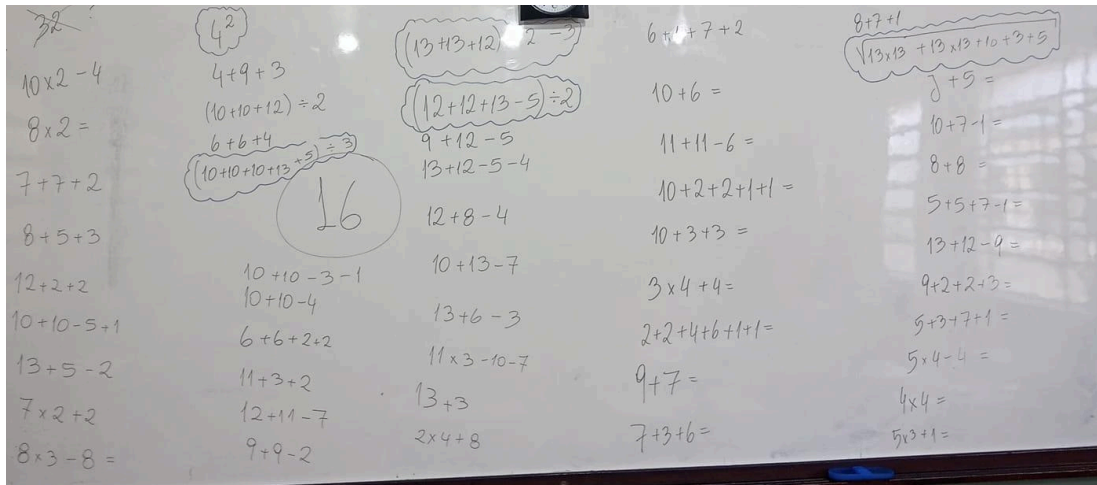 32
10×2-4
8×2=
7+7+2
8+5+3
12+2+2
10+10-5+1
13+5-2
7×2+2
8×3-8=
4²
4+9+3
(10+10+12)÷2
6+6+4
(10+10+10+13+5)÷3
16
10+10-3-1
10+10-4
6+6+2+2
11+3+2
12+11-7
9+9-2
(13+13+12) 2-3
(12+12+13-5)÷2
9+12-5
13+12-5-4
12+8-4
10+13-7
13+6-3
11×3-10-7
13+3
2×4+8
6+1+7+2
10+6=
11+11-6=
10+2+2+1+1=
10+3+3=
3×4+4=
2+2+4+6+1+1=
9+7=
7+3+6=
8+7+1
√13×13+13×13+10+3+5
J+5=
10+7-1=
8+8=
5+5+7-1=
13+12-9=
9+2+2+3=
5+3+7+1=
5×4-4=
4×4=
5×3+1=